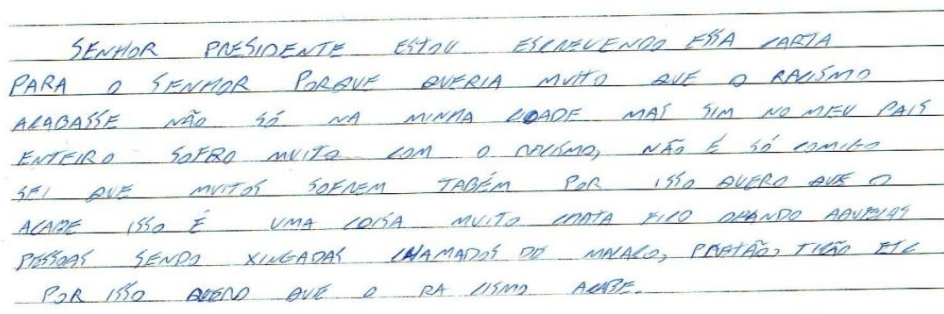 SENHOR PRESIDENTE ESTOU ESCREVENDO ESSA CARTA
PARA O SENHOR PORQUE QUERIA MUITO QUE O RACISMO
ACABASSE NÃO SÓ NA MINHA CIDADE MAS SIM NO MEU PAIS
ENTEIRO SOFRO MUITO COM O RACISMO, NÃO É SÓ COMIGO
SEI QUE MUITOS SOFREM TABÉM POR ISSO QUERO QUE O
ACABE ISSO É UMA COISA MUITO CHATA FICO OHANDO AQUELAS
PESSOAS SENDO XINGADAS CHAMADOS DE MACACO, PRETÃO, TIÇÃO ETC
POR ISSO QUERO QUE O RA CISMO ACABE.